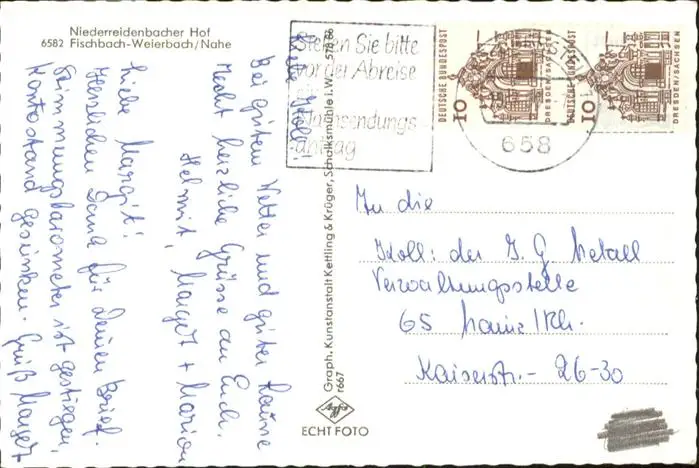 Niederreidenbacher Hof
6582 Fischbach-Weierbach/Nahe
Stellen Sie bitte
vor der Abreise
Nachsendungs
antrag
658
DEUTSCHE BUNDESPOST
10
DRESDEN/SACHSEN
DEUTSCHE BUNDESPOST
10
DRESDEN/SACHSEN
Bei gutem Wetter und guter Laune
Recht herzliche Grüsse an Euch.
Helmut, Margot + Marion
Liebe Margit!
Herzlichen Dank für Deinen Brief.
Stimmungsbarometer ist gestiegen,
Kontostand gesunken. Gruß Margot
Graph. Kunstanstalt Kettling & Krüger, Schalksmühle i. W. 578 66
r667
Agfa
ECHT FOTO
An die
Koll: der I. G Metall
Verwaltungsstelle
65 Mainz/Rh.
Kaiserstr. - 26-30